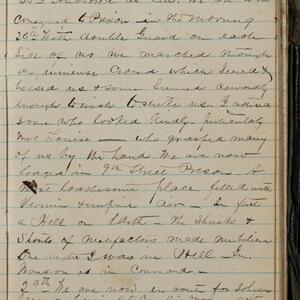 consigned to Prison in the Morning
26th With double Guard on each
Side of us we marched through
an immense Crowd which Jeered &
hissed us & some seemed cowardly
enough to wish to strike us. I noticed
some who looked kindly particularly
Mrs Louise — who grasped many
of us by the hand We are now
lodged in 9th Street Prison. A
most loathsome place filled with
Vermin & impure air — In fact
a Hell on Earth — The Shrieks &
Shouts of Malefactors made
One think I was in Hell
is in Command —
29th We are now in route for Johnson